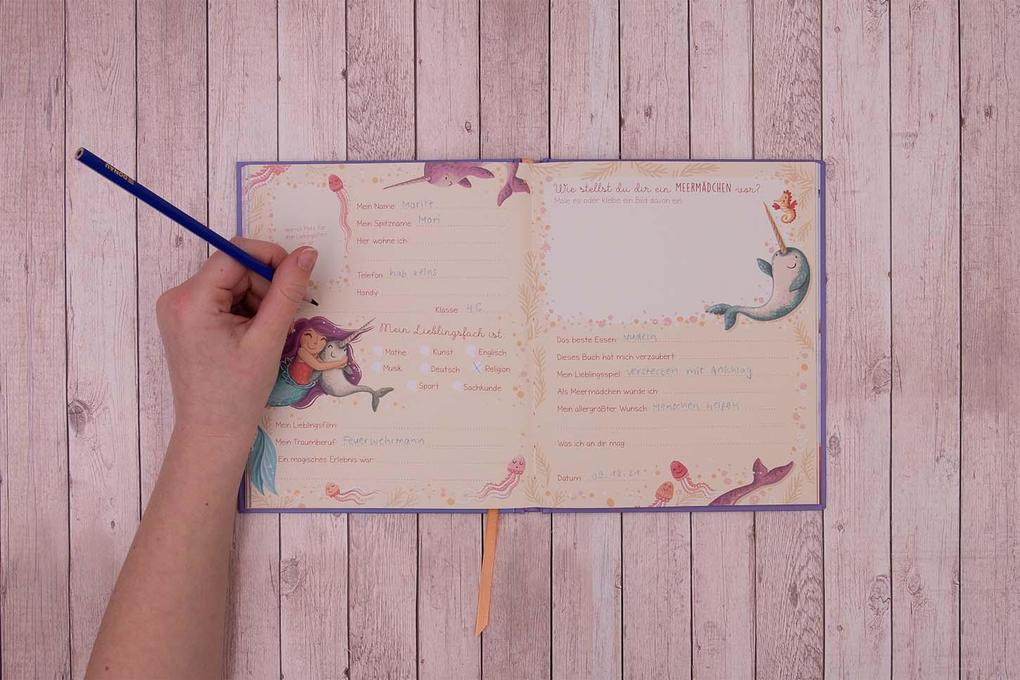 Mein Name: Maritt
Mein Spitzname: Mari
Hier wohne ich:
Telefon: hab keins
Handy:
Klasse: 4C
Mein Lieblingsfach ist
Mathe Kunst Englisch
Musik Deutsch Religion
Sport Sachkunde
Mein Lieblingsfilm:
Mein Traumberuf: Feuerwehrmann
Ein magisches Erlebnis war
Wie stellst du dir ein MEERMÄDCHEN vor?
Male es oder klebe ein Bild davon ein.
Das beste Essen: Nudeln
Dieses Buch hat mich verzaubert:
Mein Lieblingsspiel: verstecken mit Anschlag
Als Meermädchen würde ich
Mein allergrößter Wunsch: Menschen helfen
Was ich an dir mag:
Datum: